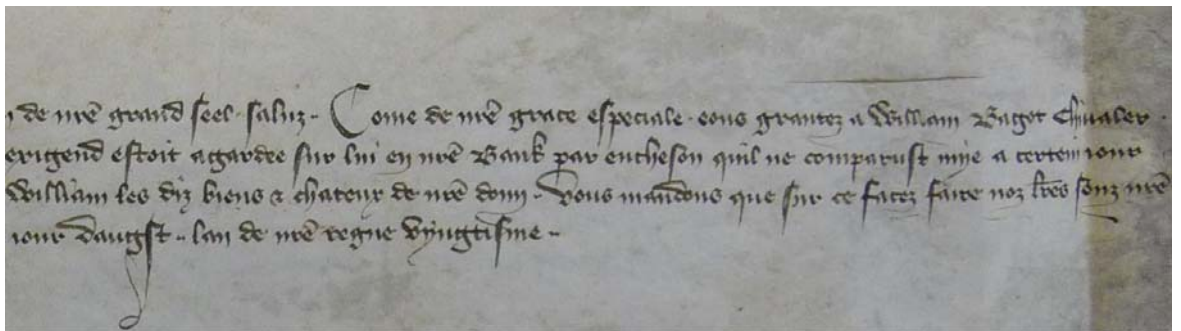 de nr̄e grand seel saluz. Come de nr̄e grace especiale eons grantez a William Bagot Chiualer.
exigend estoit agardee sur lui en nr̄e Bank par encheson quil ne comparust mye a certein iour
William les diz biens & chateux de nr̄e doun. Vous mandons que sur ce facez faire noz lr̄es souz nr̄e
iour daugst.. lan de nr̄e regne vyngtisme..